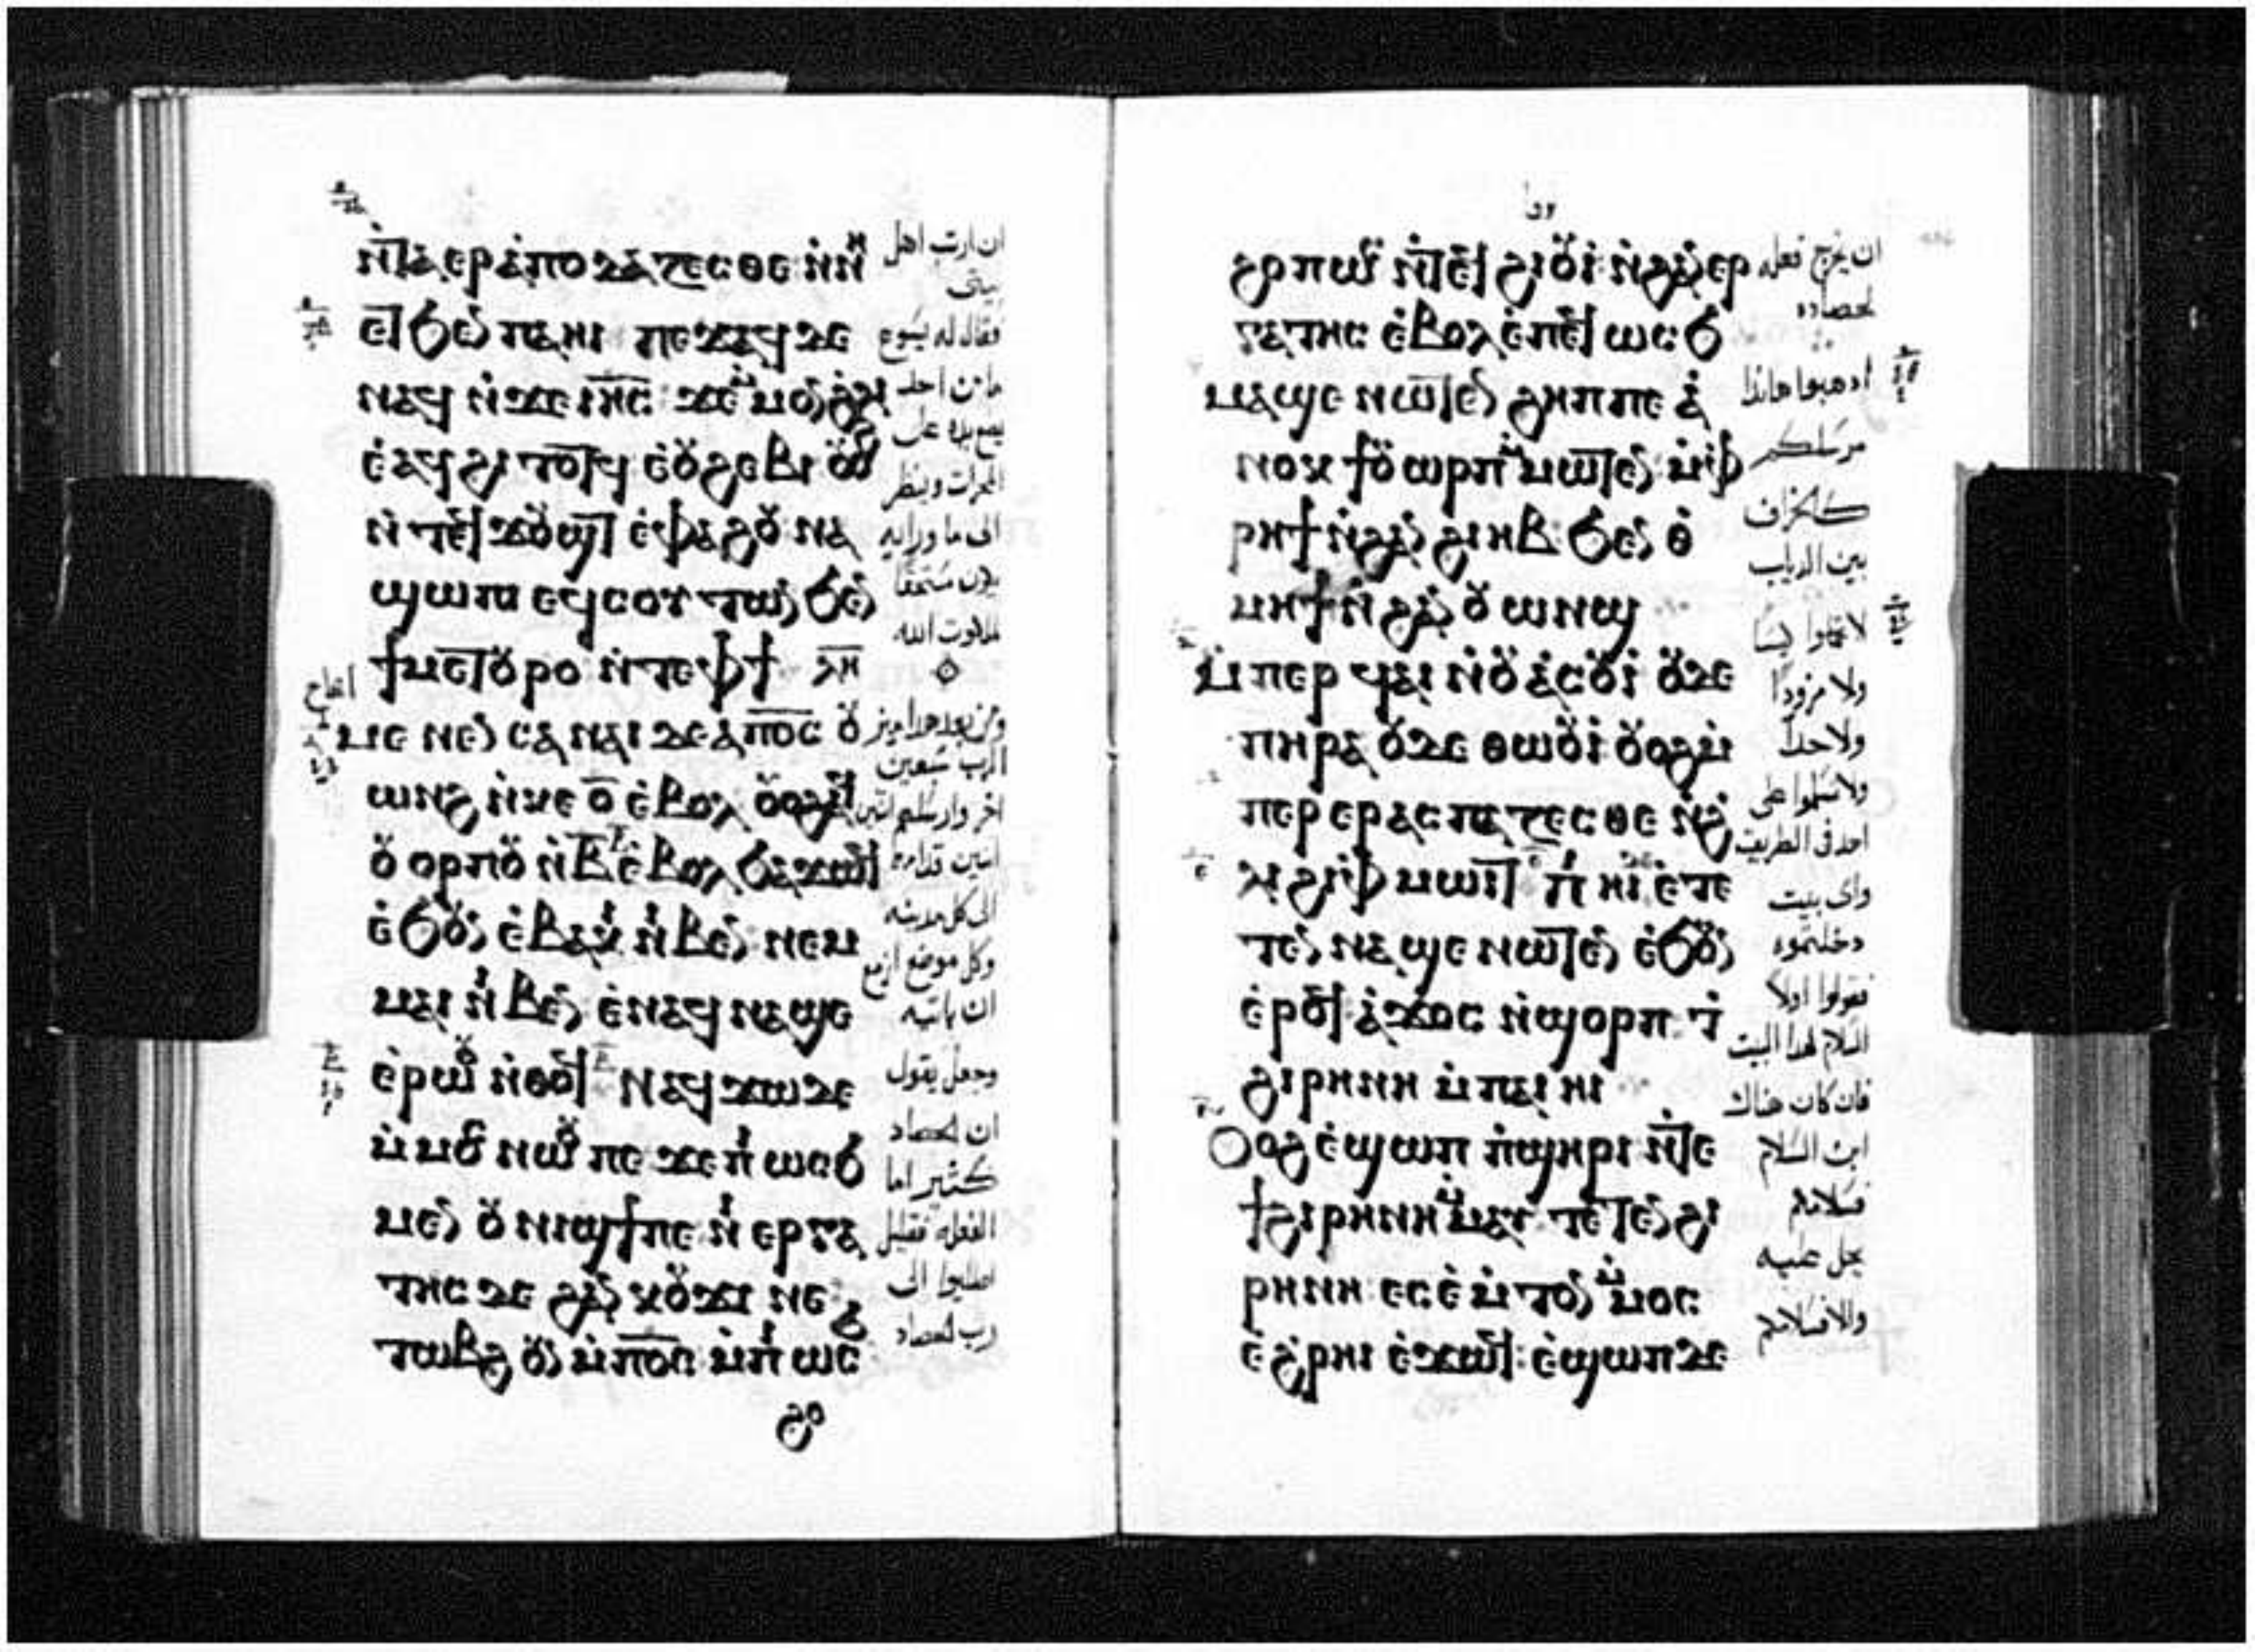 ⲛ̀ⲧⲁⲉⲣⲁ̀ⲡⲟⲇⲁⲍⲉⲥⲑⲉ ⲛ̀ⲛⲏ
ⲉⲧϧⲉⲛ ⲡⲁⲏⲓ ⲡⲉϫⲁϥ ⲇⲉ
ⲛⲁϥ ⲛ̀ϫⲉ ⲓⲏ̅ⲥ̅ ϫⲉ ⲙ̀ⲙⲟⲛ ϩ̀ⲗⲓ
ⲉ̀ⲁϥϩⲓ ⲧⲟⲧϥ ⲉ̀ⲟⲩϩⲉⲃⲓ ⲟⲩⲟϩ
ⲛ̀ⲧⲉϥϫⲟⲩϣⲧ ⲉ̀ⲫⲁϩⲟⲩ ⲛⲁ
ϣⲱⲡⲓ ⲉϥⲥⲟⲩⲧⲱⲛ ϧⲉⲛ
ϯⲙⲉⲧⲟⲩⲣⲟ ⲛ̀ⲧⲉ ⲫϯ ⲗ̅ⲏ̅
ⲙⲉⲛⲉⲛⲥⲁ ⲛⲁⲓ ⲇⲉ ⲁ̀ⲡⲟ̅ⲥ̅ ⲟⲩ
ⲱⲛϩ ⲛ̀ⲕⲉ ⲟ̅ ⲉ̀ⲃⲟⲗ ⲟⲩⲟϩ ⲁϥ
ⲟⲩⲟⲣⲡⲟⲩ ⲛ̀ⲃ̅ⲃ̅ ⲉ̀ⲃⲟⲗ ϧⲁϫⲱϥ
ⲉ̀ϧⲟⲩⲛ ⲉ̀ⲃⲁⲕⲓ ⲛⲓⲃⲉⲛ ⲛⲉⲙ
ⲙⲁⲓ ⲛⲓⲃⲉⲛ ⲉ̀ⲛⲁϥⲛⲁϣⲉ
ⲉ̀ⲣⲱⲟⲩ ⲛ̀ⲑⲟϥ ⲛⲁϥϫⲱ ⲇⲉ
ⲙ̀ⲙⲟⲥ ⲛⲱⲟⲩ ⲡⲉ ϫⲉ ⲡⲓⲱⲥϧ
ⲙⲉⲛ ⲟⲩⲛⲓϣϯ ⲡⲉ ⲛⲓⲉⲣⲅⲁ
ⲧⲏⲥ ⲇⲉ ϩⲁⲛⲕⲟⲩϫⲓ ⲛⲉ
ⲧⲱⲃϩ ⲟⲩⲛ ⲙ̀ⲡⲟ̅ⲥ̅ ⲙ̀ⲡⲓⲱⲥ
ان ارتب اهل
بيتى
فقال له يسوع
ما من احد
يضع يده على
المحراث وينظر
الى ما ورايه
يكون مستحقا
لملكوت الله
ومن بعد هذا ميز
الرب سبعين
اخر وارسلهم اثنين
اثنين قدامه
الى كل مدينه
وكل موضع ازمع
ان ياتيه
وجعل يقول
ان الحصاد
كثير اما
الفعله فقليل
اطلبوا الى
رب الحصاد
ϩⲣⲡⲱⲟⲩ ⲛ̀ⲧⲉϥϩⲓⲟⲩⲓ̀ ⲛ̀ϩⲁⲛⲉⲣ
ⲅⲁⲧⲏⲥ ⲉ̀ⲃⲟⲗ ⲉ̀ⲡⲉϥⲱⲥϧ
ⲙⲁϣⲉ ⲛⲱⲧⲉⲛ ϩⲏⲡⲡⲉ ⲁ̀
ⲛⲟⲕ ϯⲟⲩⲱⲣⲡ ⲙ̀ⲙⲱⲧⲉⲛ ⲙ̀ⲫ
ⲣⲏϯ ⲛ̀ϩⲁⲛϩⲓⲏⲃ ϧⲉⲛ ⲑ̀
ⲙⲏϯ ⲛ̀ϩⲁⲛⲟⲩⲱⲛϣ
ⲙ̀ⲡⲉⲣϥⲁⲓ ⲛ̀ⲟⲩⲁ̀ⲥⲟⲩⲓ̀ ⲟⲩⲇⲉ
ⲡⲏⲣⲁ ⲟⲩⲇⲉ ⲑⲱⲟⲩⲓ̀ ⲟⲩⲟϩ ⲙ̀
ⲡⲉⲣⲉⲣⲁⲥⲡⲁⲍⲉⲥⲑⲉ ⲛ̀ϩ̀
ⲗⲓ ϩⲓ ⲫ̀ⲙⲱⲓⲧ ⲡⲓⲏⲓ ⲇⲉ ⲉ̀ⲧⲉ
ⲧⲉⲛⲛⲁϣⲉ ⲛⲱⲧⲉⲛ ⲉ̀ϧⲟⲩⲛ
ⲉ̀ⲣⲟϥ ⲁ̀ϫⲟⲥ ⲛ̀ϣⲟⲣⲡ ⲧ̀
ϩⲓⲣⲏⲛⲏ ⲙ̀ⲡⲁⲓⲏⲓ
ⲟⲩⲟϩ ⲉ̀ϣⲱⲡ ⲡ̀ϣⲏⲣⲓ ⲛ̀ⲧⲉ
ϯϩⲓⲣⲏⲛⲏ ⲙ̀ⲙⲁⲩ ⲧⲉⲧⲉⲛϩⲓ
ⲣⲏⲛⲏ ⲉⲥⲉ̀ⲙ̀ⲧⲟⲛ ⲙ̀ⲙⲟⲥ
ⲉ̀ϩ̀ⲣⲏⲓ ⲉ̀ϫⲱϥ ⲉ̀ϣⲱⲡ ⲇⲉ
ان يخرج فعله
لحصاده
اذهبوا هانذا
مرسلكم
كالخراف
بين الدياب
لا تحملوا كيسا
ولا مزودا
ولا حذا
ولا تسلموا على
احد فى الطريق
واى بيت
دخلتموه
فقولوا اولا
السلام لهذا البيت
فان كان هناك
ابن السلام
فسلامكم
يحل عليه
والا فسلامكم